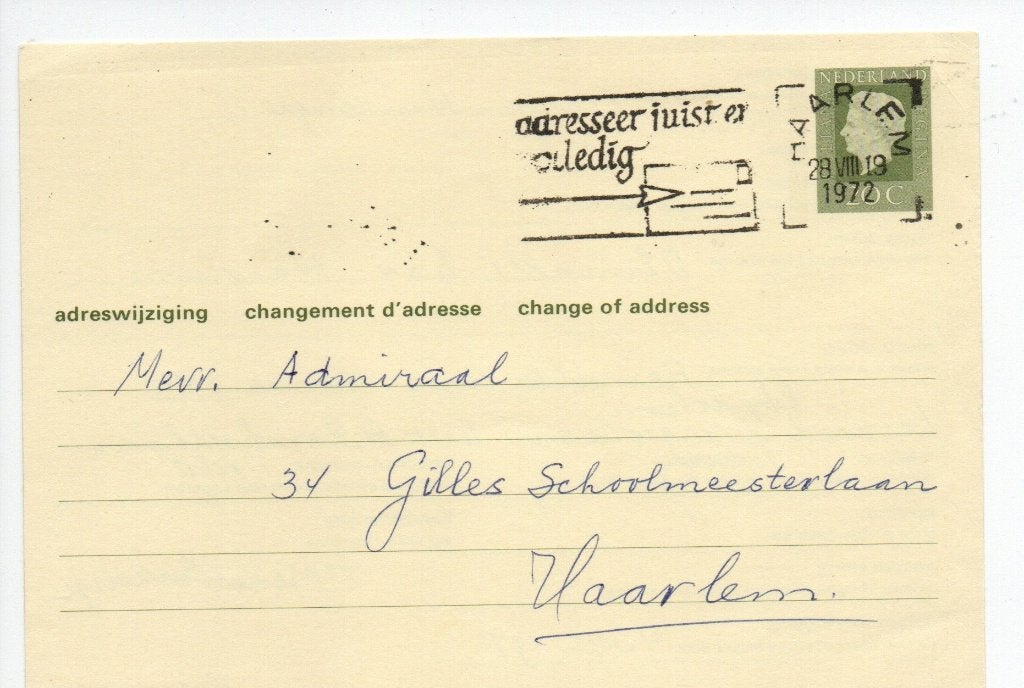 adresseer juist en
volledig
NEDERLAND
HAARLEM
28 VIII 18
1972
20 C
adreswijziging changement d'adresse change of address
Mevr. Admiraal
34 Gilles Schoolmeesterlaan
Haarlem.